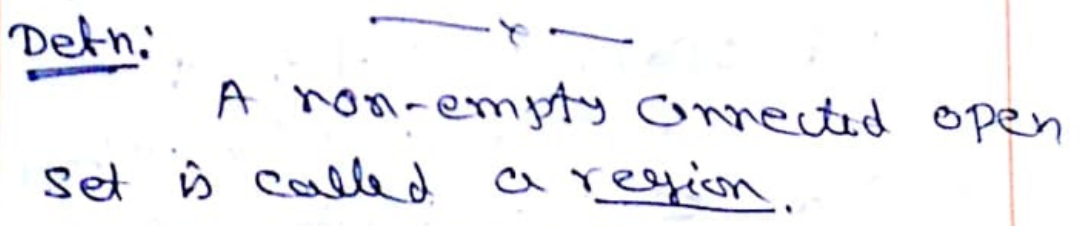 Defn:
A non-empty connected open
set is called a region.